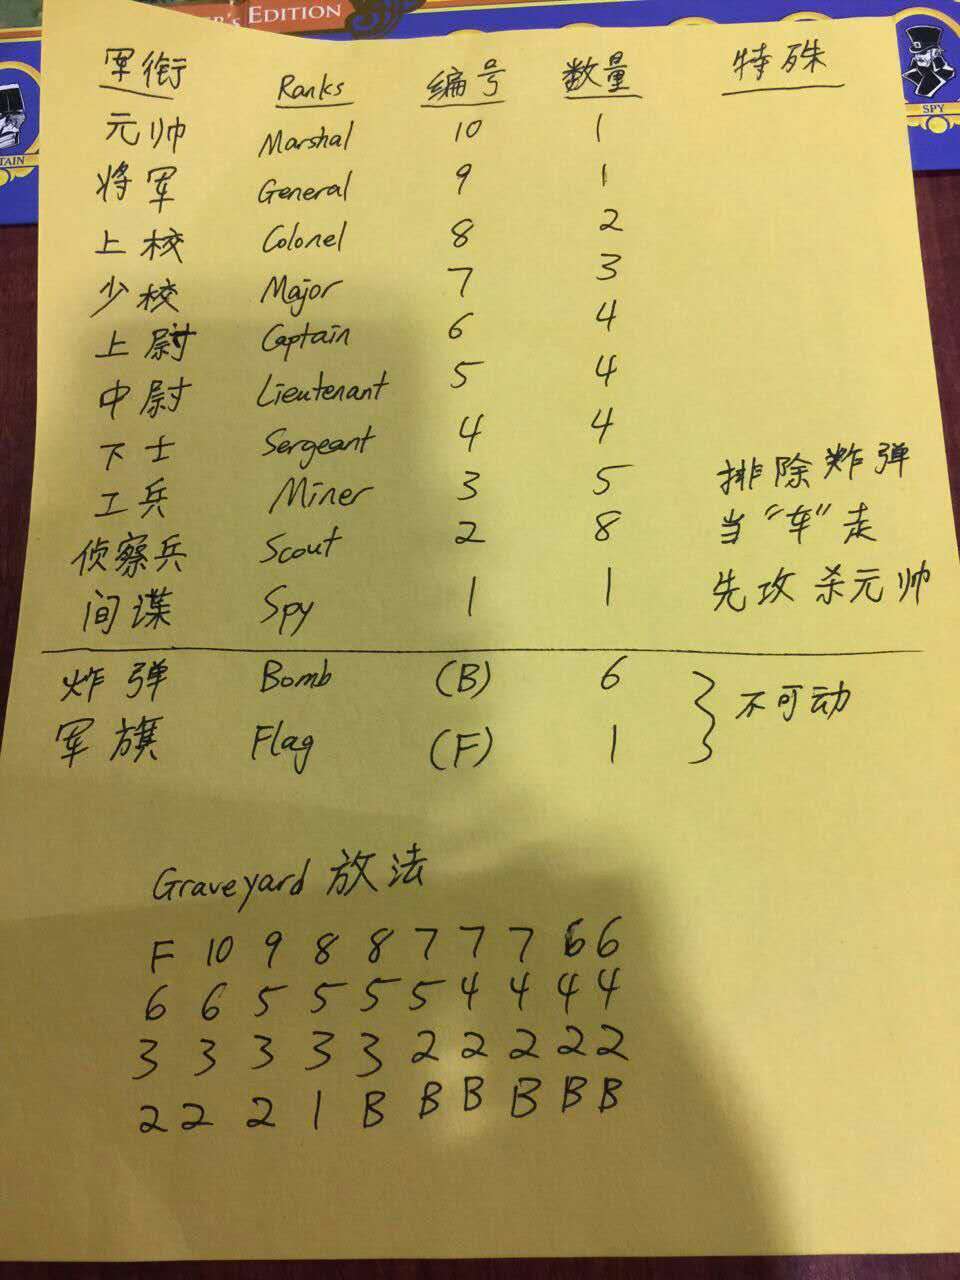 ER'S EDITION
TAIN
SPY
军衔 Ranks 编号 数量 特殊
元帅 Marshal 10 1
将军 General 9 1
上校 Colonel 8 2
少校 Major 7 3
上尉 Captain 6 4
中尉 Lieutenant 5 4
下士 Sergeant 4 4
工兵 Miner 3 5 排除炸弹
侦察兵 Scout 2 8 当“车”走
间谍 Spy 1 1 先攻杀元帅
炸弹 Bomb (B) 6
军旗 Flag (F) 1
不可动
Graveyard 放法
F 10 9 8 8 7 7 7 6 6
6 6 5 5 5 5 4 4 4 4
3 3 3 3 3 2 2 2 2 2
2 2 2 1 B B B B B B